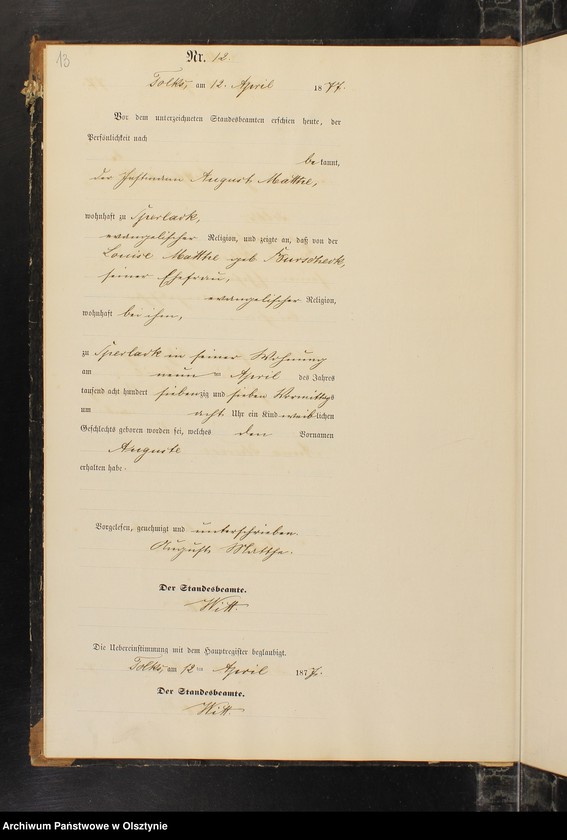 13
Nr. 12.
Tolks, am 12. April 1877.
Vor dem unterzeichneten Standesbeamten erschien heute, der
Persönlichkeit nach
bekannt,
der Instmann August Matthe,
wohnhaft zu Sperlack,
evangelischer Religion, und zeigte an, daß von der
Louise Matthe geb Burscheck,
seiner Ehefrau,
evangelischer Religion,
wohnhaft bei ihm,
zu Sperlack in seiner Wohnung
am neun ten April des Jahres
tausend acht hundert siebenzig und sieben Vormittags
um acht Uhr ein Kind weiblichen
Geschlechts geboren worden sei, welches den Vornamen
Auguste
erhalten habe.
Vorgelesen, genehmigt und unterschrieben.
August Matthe.
Der Standesbeamte.
Witt.
Die Uebereinstimmung mit dem Hauptregister beglaubigt.
Tolks, am 12ten April 1877.
Der Standesbeamte.
Witt.
Archiwum Państwowe w Olsztynie